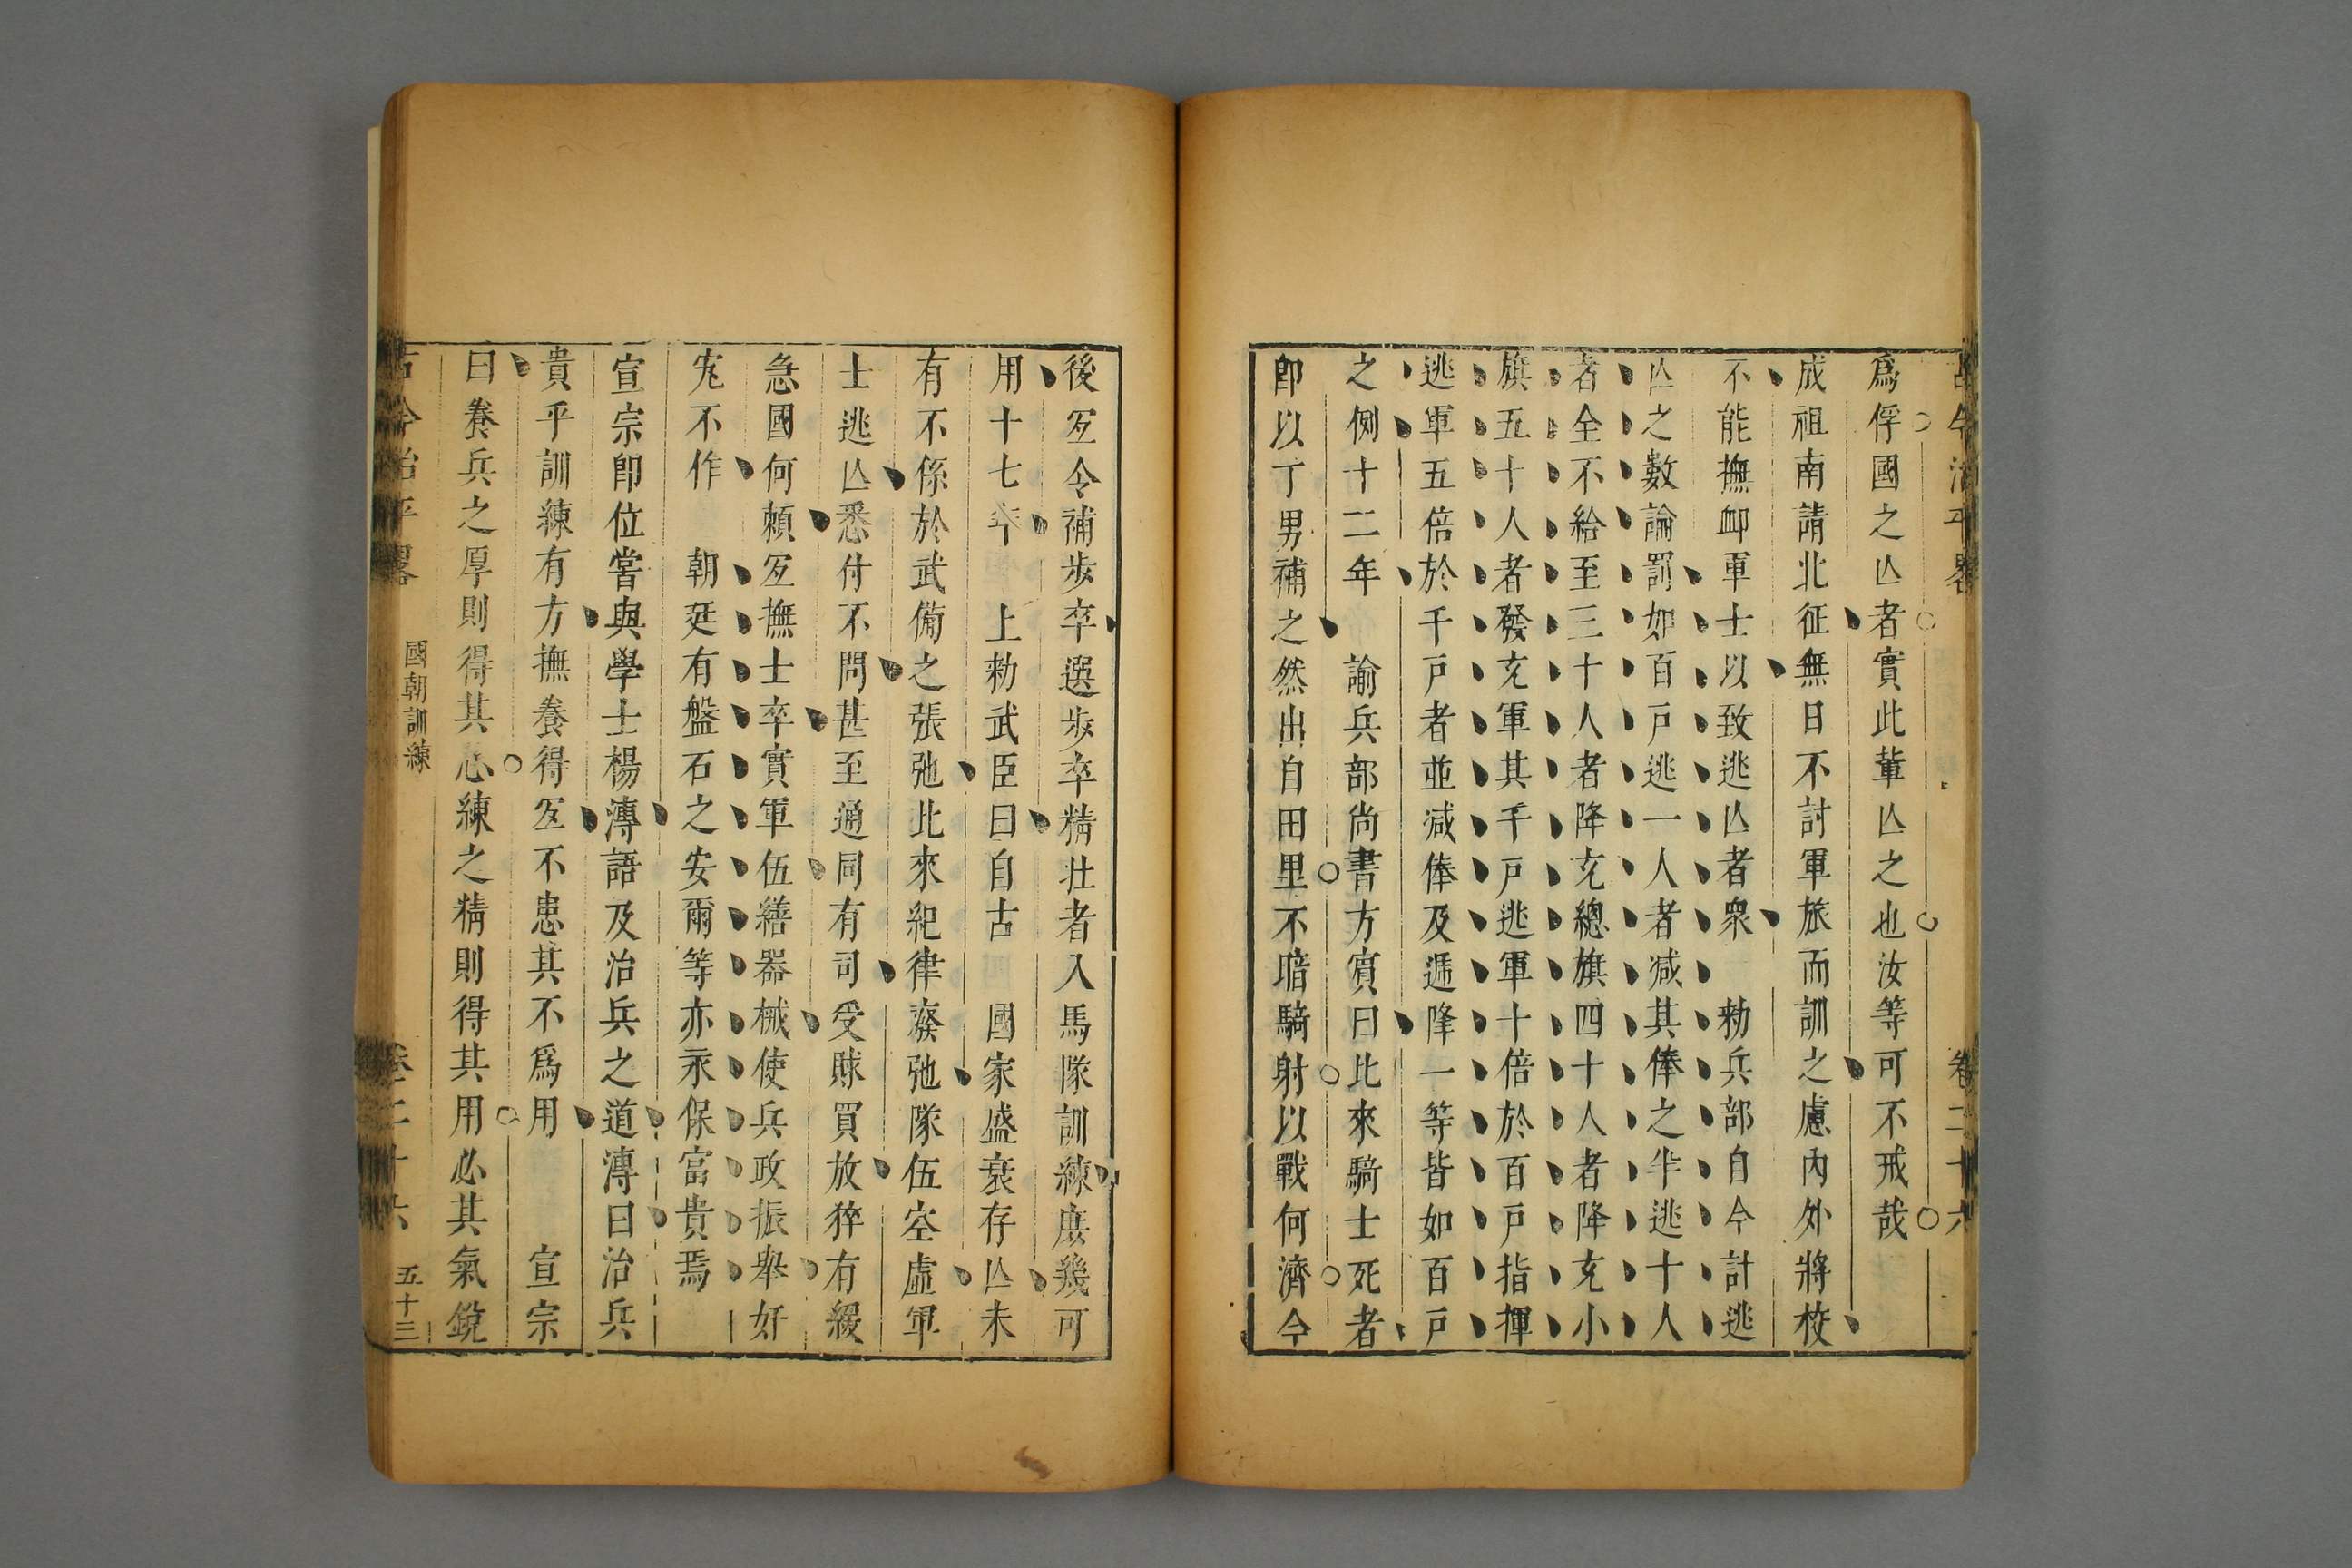 古今治平畧 卷二十六
爲俘國之亾者實此輩亾之也汝等可不戒哉
成祖南靖北征無日不討軍旅而訓之慮內外將校
不能撫卹軍士以致逃亾者衆 勅兵部自今計逃
亾之數論罰如百戶逃一人者减其俸之半逃十人
者全不給至三十人者降充總旗四十人者降充小
旗五十人者發充軍其千戶逃軍十倍於百戶指揮
逃軍五倍於千戶者並减俸及遞降一等皆如百戶
之側十二年 諭兵部尚書方賓曰比來騎士死者
卽以丁男補之然出自田里不暗騎射以戰何濟今
後宐令補步卒選步卒精壯者入馬隊訓練庻幾可
用十七年 上勅武臣曰自古 國家盛衰存亾未
有不係於武備之張弛比來紀律廢弛隊伍空虛軍
士逃亾悉付不問甚至通同有司受賕買放猝有緩
急國何頼宐撫士卒實軍伍繕器械使兵政振舉奸
宄不作 朝廷有盤石之安爾等亦永保富貴焉
宣宗卽位嘗與學士楊溥語及治兵之道溥曰治兵
貴乎訓練有方撫養得宐不患其不爲用 宣宗
曰養兵之厚則得其心練之精則得其用必其氣銳
古今治平畧 國朝訓練 卷二十六 五十三